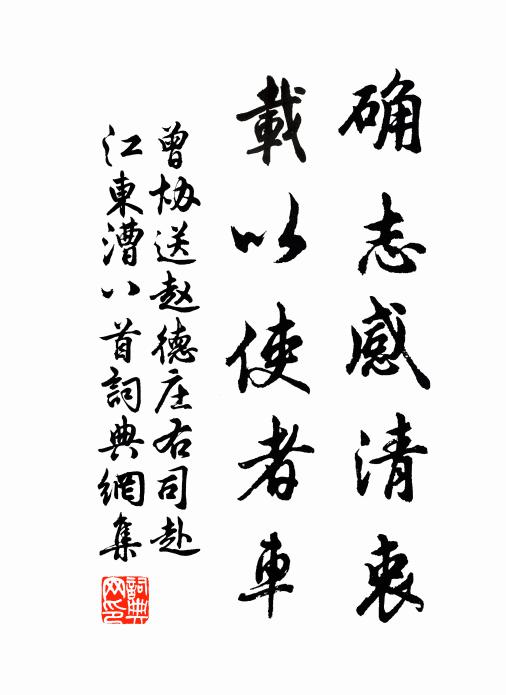 确志感清衷
載以使者車
曾协送赵德庄右司赴
江東漕八首詞典網集
詞典网印